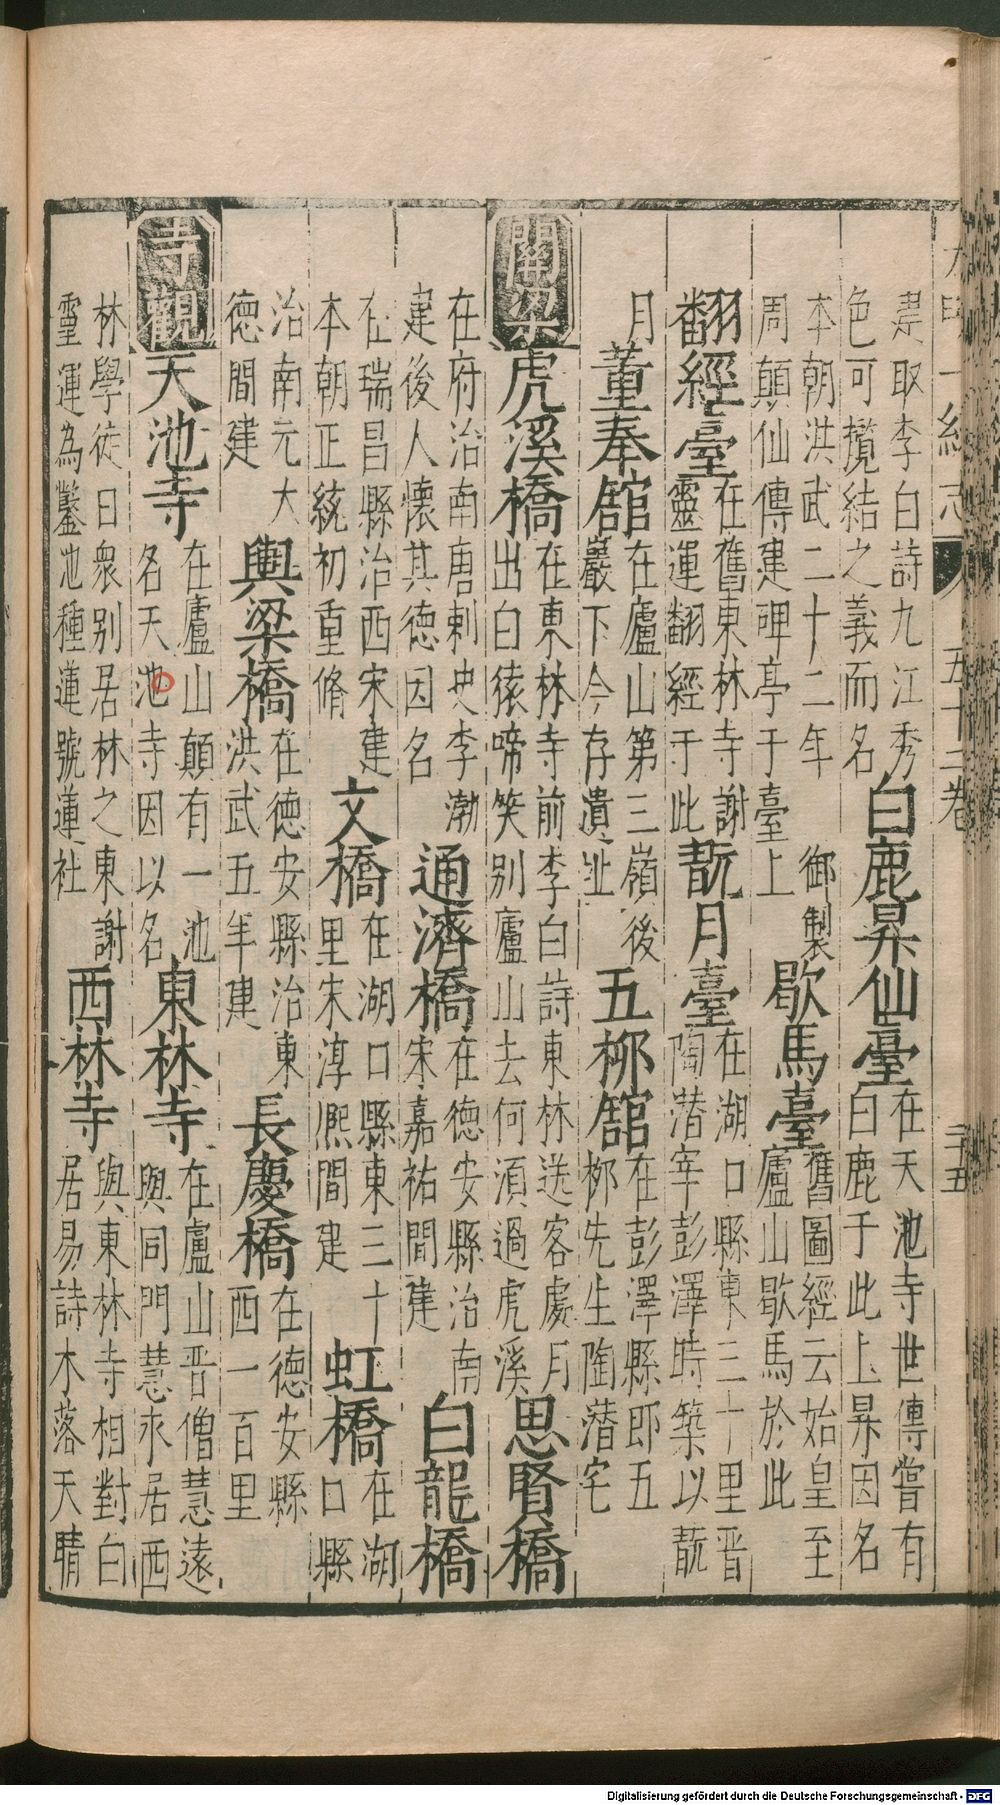 大明一統志 五十二卷 二十五
建取李白詩九江秀色可攬結之義而名 白鹿昇仙臺 在天池寺世傳嘗有白鹿于此上昇因名
本朝洪武二十二年 御製周顛仙傳建碑亭于臺上 歇馬臺 舊圖經云始皇至廬山歇馬於此
翻經臺 在舊東林寺謝靈運翻經于此 翫月臺 在湖口縣東三十里晋陶潜宰彭澤時築以翫
月 董奉舘 在廬山第三嶺後巖下今存遺址 五柳舘 在彭澤縣即五柳先生陶潜宅
關梁 虎溪橋 在東林寺前李白詩東林送客處月出白猿啼笑别廬山去何須過虎溪 思賢橋
在府治南唐刺史李渤建後人懷其德因名 通濟橋 在德安縣治南宋嘉祐間建 白龍橋
在瑞昌縣治西宋建本朝正統初重脩 文橋 在湖口縣東三十里宋淳熈間建 虹橋 在湖口縣
治南元大德間建 輿梁橋 在德安縣治東洪武五年建 長慶橋 在德安縣西一百里
寺觀 天池寺 在廬山顛有一池名天池寺因以名 東林寺 在廬山晋僧慧遠與同門慧永居西
林學徒日衆别居林之東謝靈運為鑿池種蓮號蓮社 西林寺 與東林寺相對白居易詩木落天晴
Digitalisierung gefördert durch die Deutsche Forschungsgemeinschaft - DFG